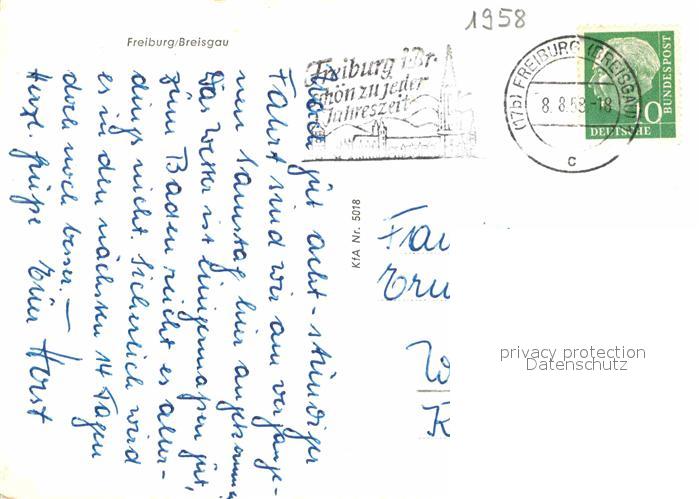 1958
Freiburg/Breisgau
Freiburg i. Br.
schön zu jeder
Jahreszeit
(17b) FREIBURG (BREISGAU)
8.8.58-18
c
10
DEUTSCHE
BUNDESPOST
Nach gut acht-stündiger
Fahrt sind wir am vergange-
nen Samstag hier angekommen
Das Wetter ist einigermaßen gut,
zum Baden reicht es aller-
dings nicht. Sicherlich wird
es in den nächsten 14 Tagen
doch noch besser. —
Herzl. Grüße Euer Horst
KfA Nr. 5018
privacy protection
Datenschutz